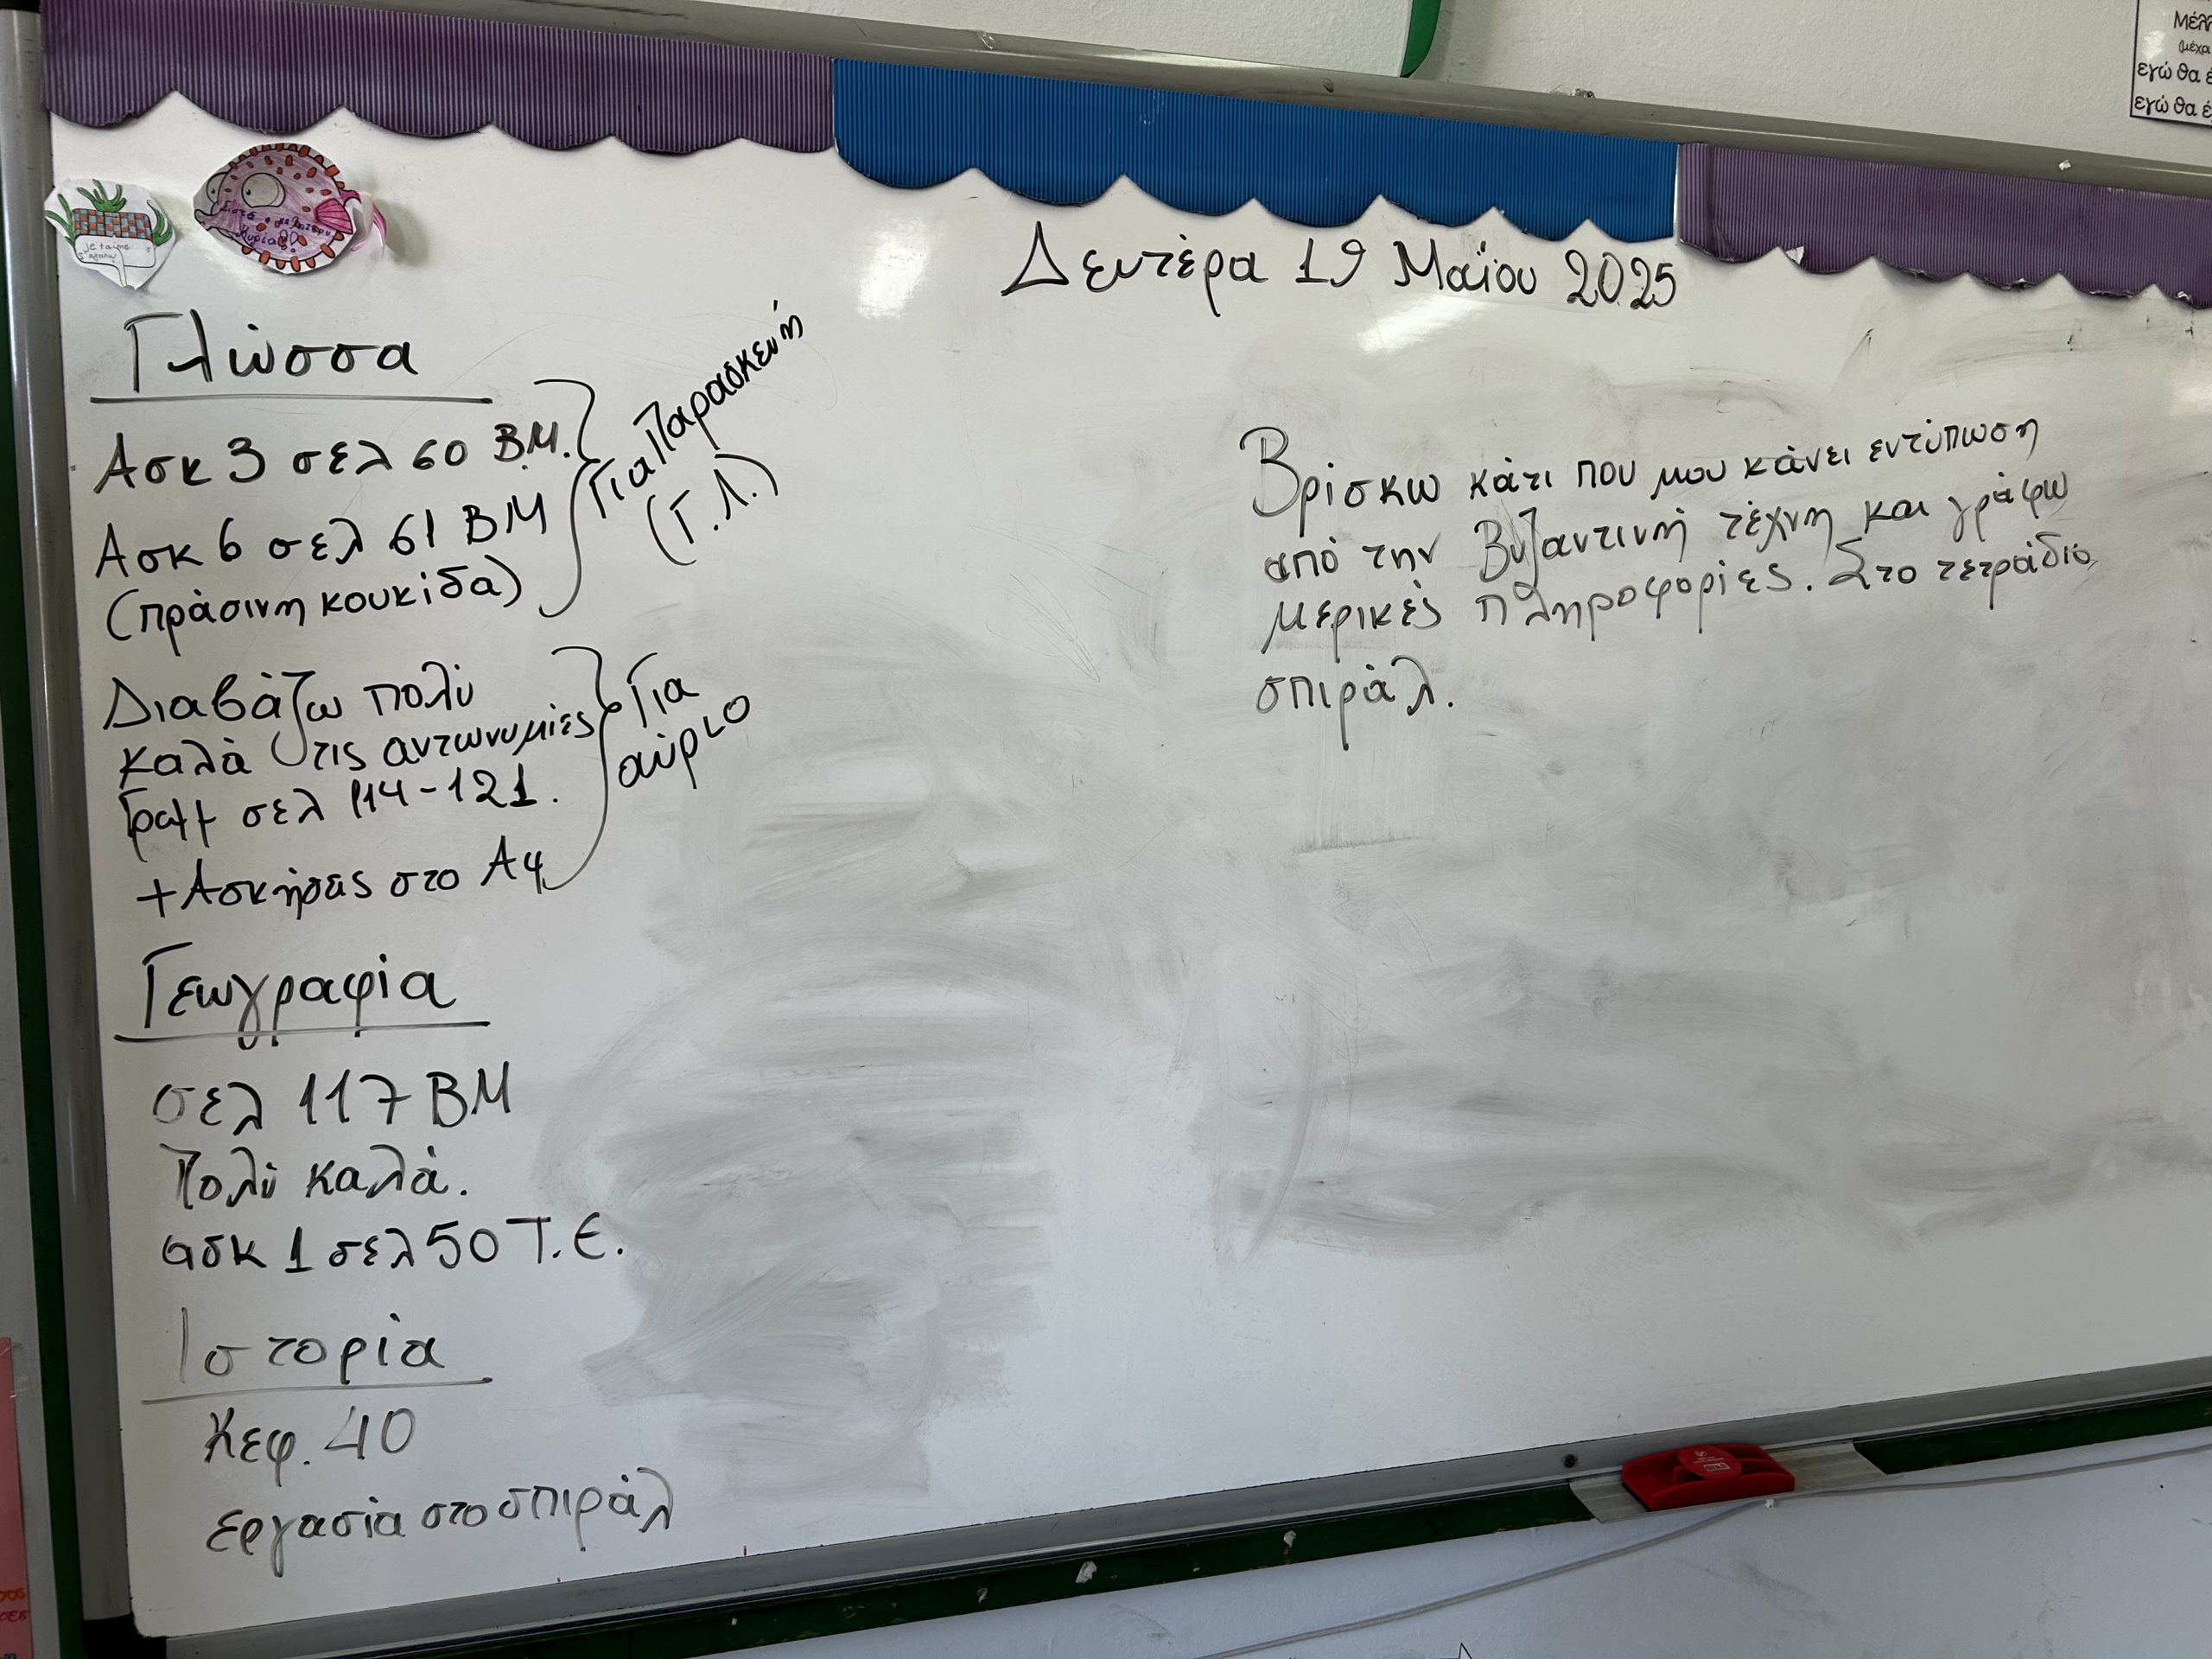 Μέλλ
(μέχρ
εγώ θα έ
εγώ θα έ
je t'aime
Δευτέρα 19 Μαΐου 2025
Γλώσσα
Ασκ 3 σελ 60 Β.Μ.
Ασκ 6 σελ 61 ΒΜ
(πράσινη κουκίδα)
Για Παρασκευή
(Γ.Λ.)
Διαβάζω πολύ
καλά τις αντωνυμίες
Γραμ σελ 114-121.
+Ασκήσεις στο Αφ
Για
αύριο
Γεωγραφία
σελ 117 ΒΜ
Πολύ καλά.
ασκ 1 σελ 50 Τ.Ε.
Ιστορία
Κεφ. 40
εργασία στο σπιράλ
Βρίσκω κάτι που μου κάνει εντύπωση
από την Βυζαντινή τέχνη και γράφω
μερικές πληροφορίες. Στο τετράδιο
σπιράλ.